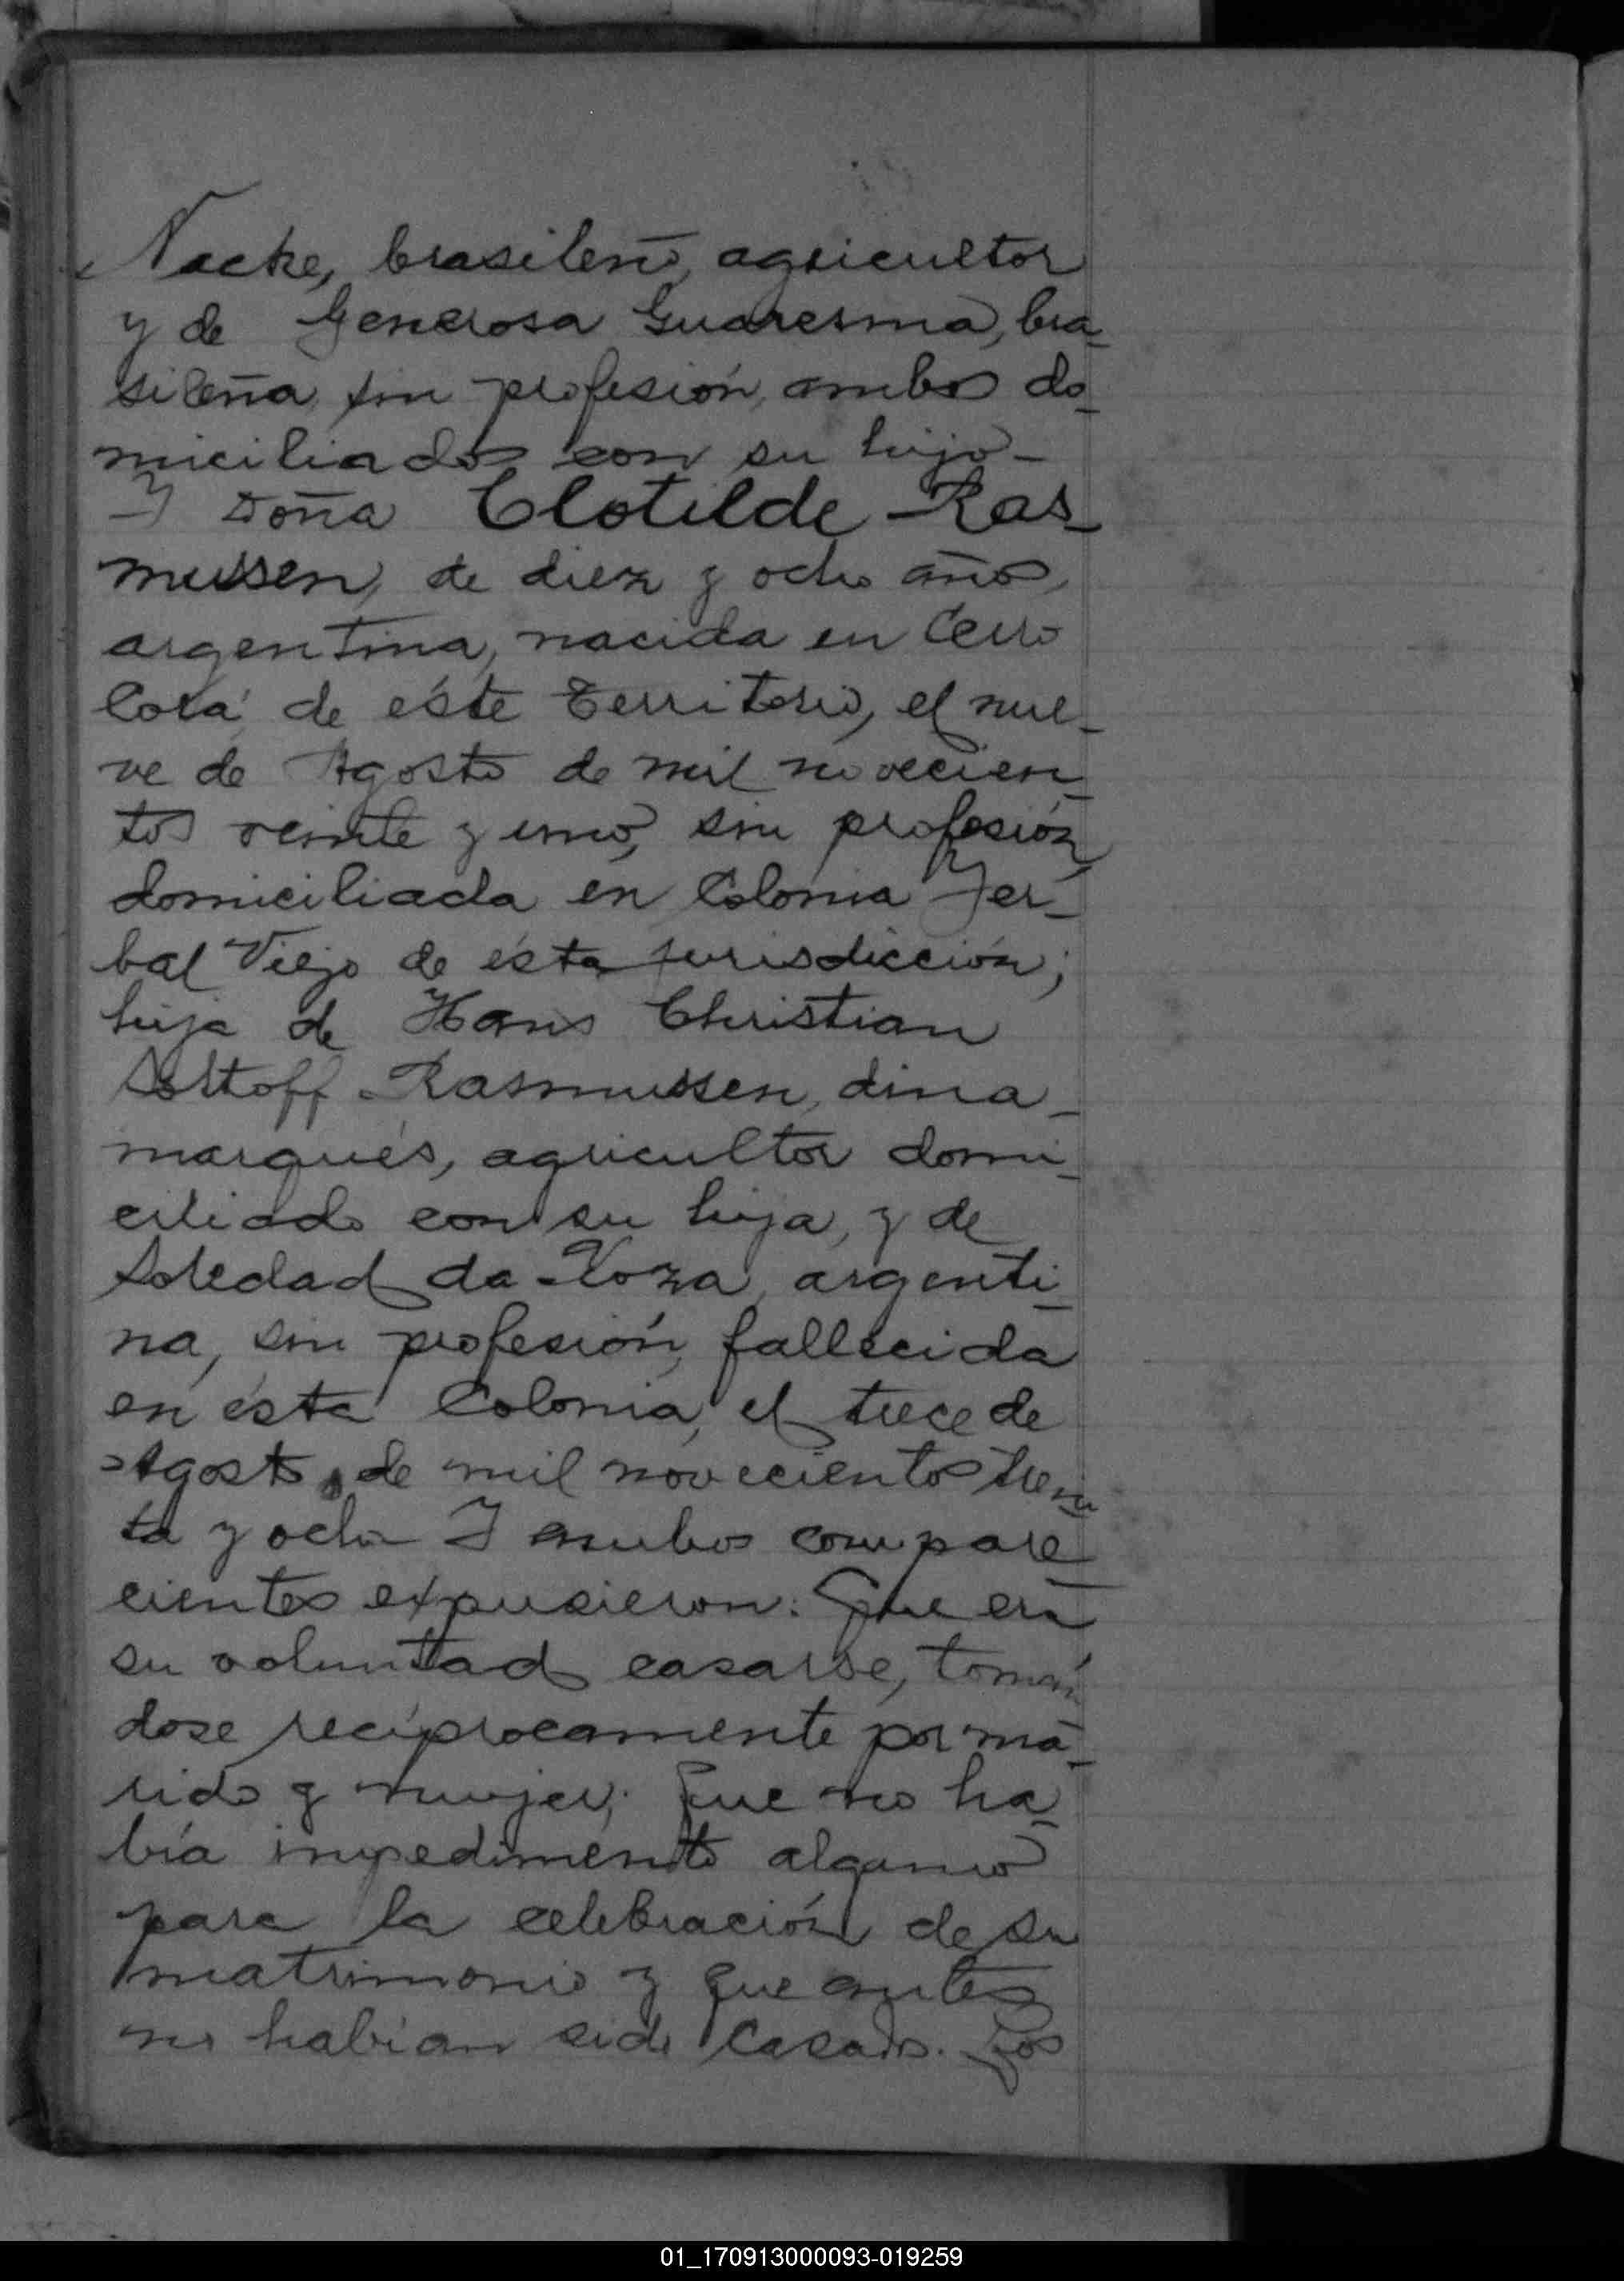 Nacke, brasileño, agricultor
y de Generosa Guaresma, bra-
sileña, sin profesión, ambos do-
miciliados con su hijo-
Y Doña Clotilde Ras-
mussen, de diez y ocho años,
argentina, nacida en Cerro
Corá, de éste Territorio, el nue-
ve de Agosto de mil novecien-
tos veinte y uno, sin profesión,
domiciliada en Colonia Yer-
bal Viejo de ésta jurisdicción;
hija de Hans Christian
Rasmussen, dina-
marqués, agricultor domi-
ciliado con su hija, y de
Soledad da argenti-
na, sin profesión, fallecida
en ésta Colonia, el trece de
Agosto de mil novecientos trein
ta y ocho Y ambos compare-
cientes expusieron: Que era
su voluntad casarse, tomán
dose recíprocamente por ma-
rido y mujer; Que no ha-
bía impedimento alguno
para la celebración de su
matrimonio y que antes
no habían sido casados. Los
01_170913000093-019259